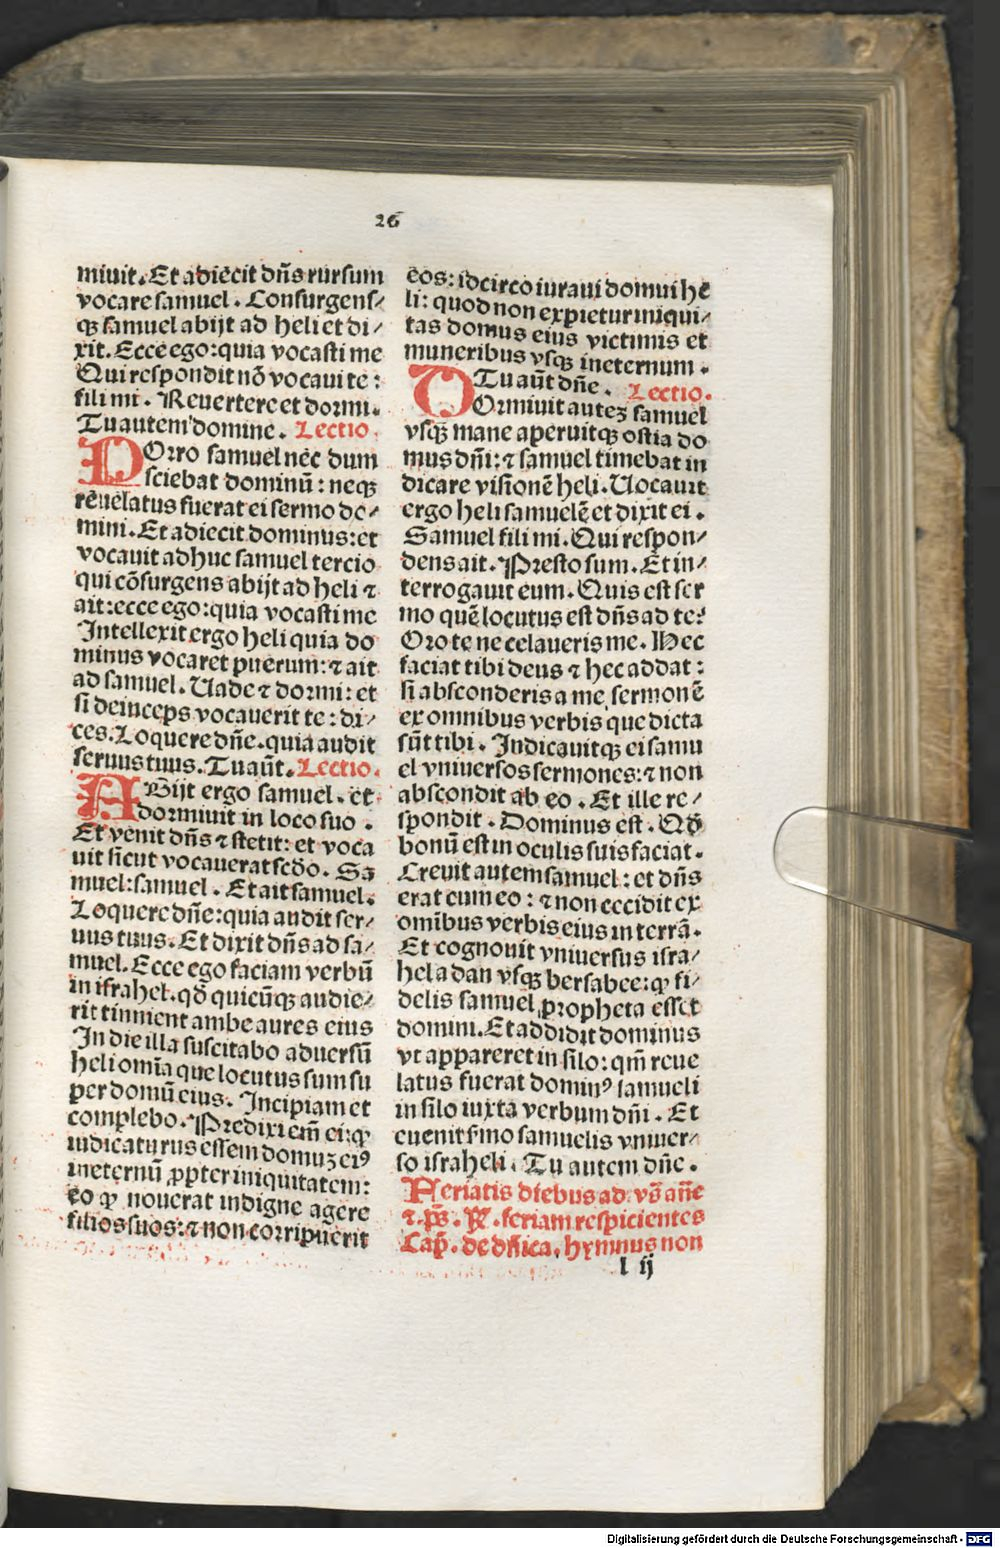 26
miuit. Et adiecit dñs rursum
vocare samuel. Consurgens⸗
qꝫ samuel abijt ad heli et di⸗
xit. Ecce ego: quia vocasti me
Qui respondit nō vocaui te:
fili mi. Reuertere et dormi.
Tu autem domine. Lectio.
POrro samuel nec dum
sciebat dominū: neqꝫ
reuelatus fuerat ei sermo do⸗
mini. Et adiecit dominus: et
vocauit adhuc samuel tercio
qui cōsurgens abijt ad heli ⁊
ait: ecce ego: quia vocasti me
Intellexit ergo heli quia do
minus vocaret puerum: ⁊ ait
ad samuel. Uade ⁊ dormi: et
si deinceps vocauerit te: di⸗
ces. Loquere dñe. quia audit
seruus tuus. Tu aūt. Lectio.
ABijt ergo samuel. et
dormiuit in loco suo.
Et venit dñs ⁊ stetit: et voca
uit sicut vocauerat scđo. Sa
muel: samuel. Et ait samuel.
Loquere dñe: quia audit ser⸗
uus tuus. Et dixit dñs ad sa⸗
muel. Ecce ego faciam verbū
in israhel. qđ quicūqꝫ audie⸗
rit tinnient ambe aures eius
In die illa suscitabo aduersū
heli omīa que locutus sum su
per domū eius. Incipiam et
complebo. Predixi em̄ ei: ꝙ
iudicaturus essem domuꝫ eiꝰ
ineternū ꝓpter iniquitatem:
eo ꝙ nouerat indigne agere
filios suos: ⁊ non corripuerit
eos: idcirco iuraui domui he
li: quod non expietur iniqui⸗
tas domus eius victimis et
muneribus vsqꝫ ineternum.
Tu aūt dñe. Lectio.
DOrmiuit auteꝫ samuel
vsqꝫ mane aperuitqꝫ ostia do
mus dñi: ⁊ samuel timebat in
dicare visionē heli. Uocauit
ergo heli samuelē et dixit ei.
Samuel fili mi. Qui respon⸗
dens ait. Presto sum. Et in⸗
terrogauit eum. Quis est ser
mo quē locutus est dñs ad te?
Oro te ne celaueris me. Hec
faciat tibi deus ⁊ hec addat:
si absconderis a me sermonē
ex omnibus verbis que dicta
sūt tibi. Indicauitqꝫ ei samu
el vniuersos sermones: ⁊ non
abscondit ab eo. Et ille re⸗
spondit. Dominus est. Qđ
bonū est in oculis suis faciat.
Creuit autem samuel: et dñs
erat cum eo: ⁊ non cecidit ex
omībus verbis eius in terrā.
Et cognouit vniuersus isra⸗
hel a dan vsqꝫ bersabee: ꝙ fi⸗
delis samuel propheta esset
domini. Et addidit dominus
vt appareret in silo: qm̄ reue
latus fuerat dominꝰ samueli
in silo iuxta verbum dñi. Et
euenit s̄mo samuelis vniuer⸗
so israheli. Tu autem dñe.
Feriatis diebus ad. vs̄ añe
⁊. ps̄. ℟. feriam respicientes
Cap̄. de dñica, hymnus non
l ij
Digitalisierung gefördert durch die Deutsche Forschungsgemeinschaft - DFG